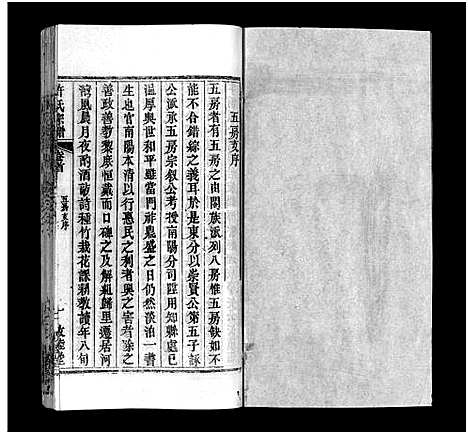 五房支序
五房者有五房之由闔族派列八房惟五房缺如不
能不合錯綜之義耳於是東分以崇賢公第五子詠
公派承五房宗叙公考授南陽分司陞用知縣處己
溫厚與世和平雖當門祚鼎盛之日仍然淡泊一書
生也官南陽本清以行惠民之利者興之害者除之
善政善教黎庶恒戴而口碑之及解組歸里還居河
清風晨月夜酌酒敲詩種竹栽花課耕教讀年八旬
許氏宗譜
卷首
五房支序